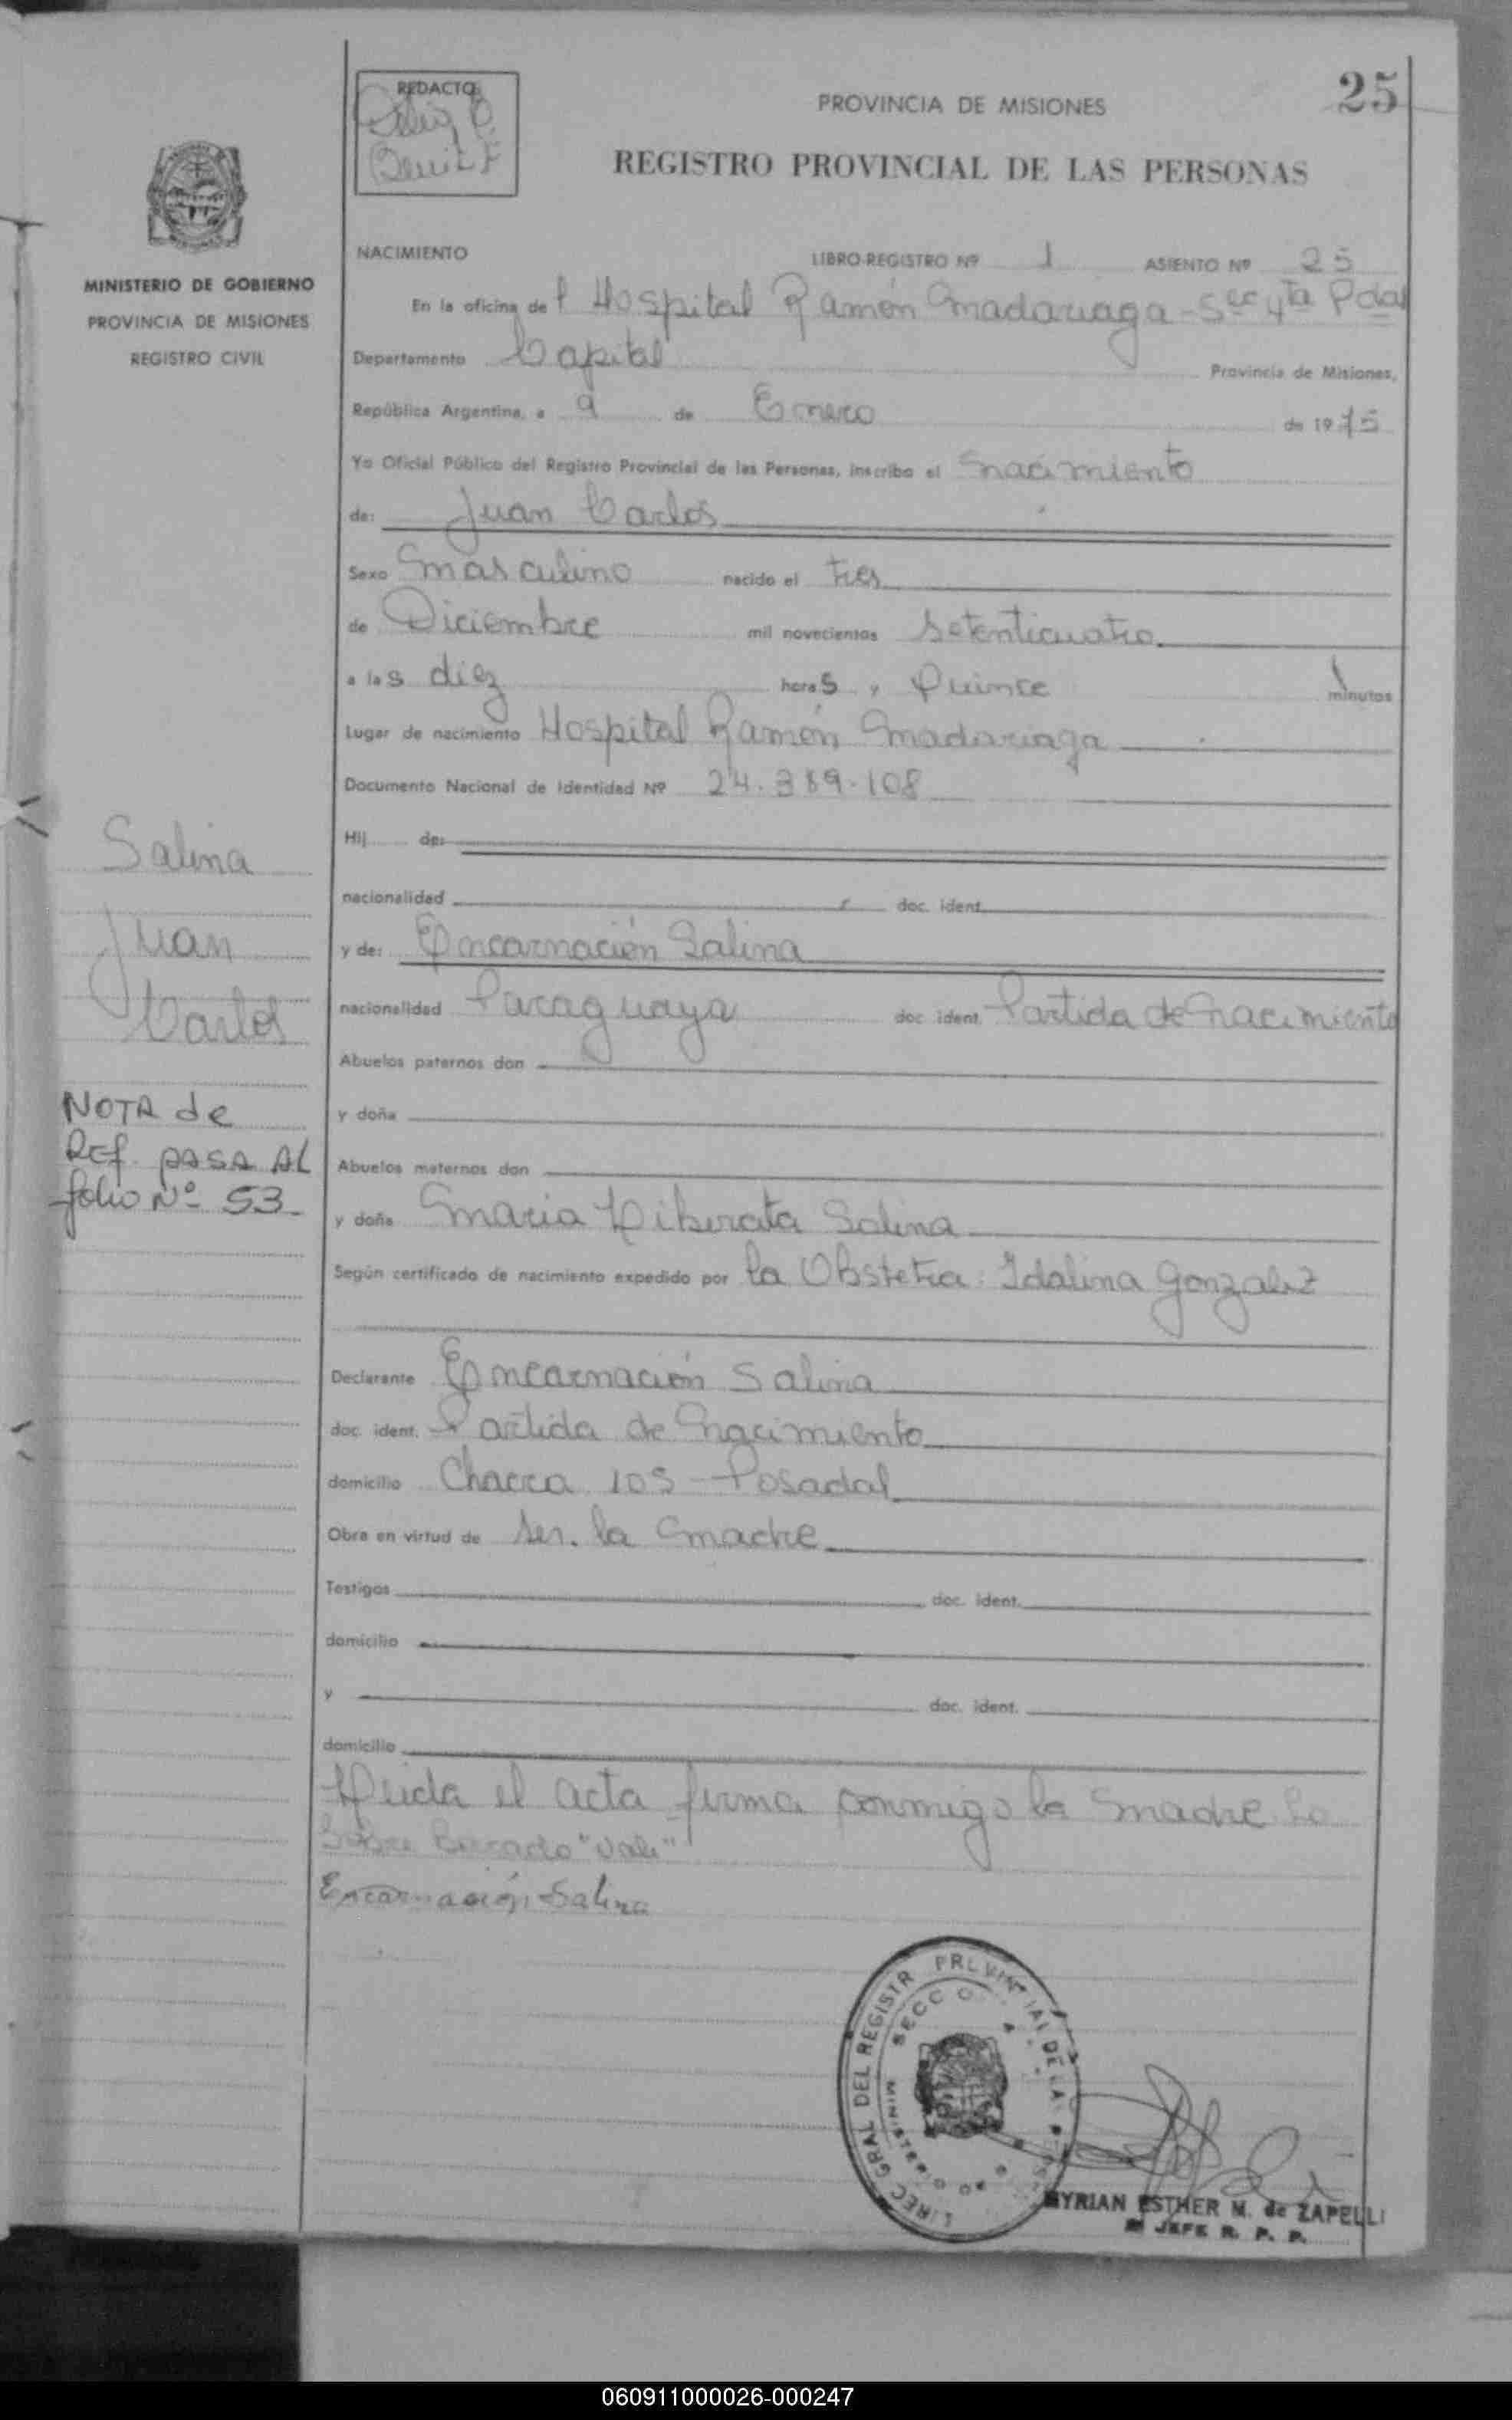 25
REDACTO
PROVINCIA DE MISIONES
REGISTRO PROVINCIAL DE LAS PERSONAS
MINISTERIO DE GOBIERNO
PROVINCIA DE MISIONES
REGISTRO CIVIL
NACIMIENTO LIBRO-REGISTRO Nº 1 ASIENTO Nº 25
En la oficina del Hospital Ramón Madariaga - Sec 4ta Pdas
Departamento Capital Provincia de Misiones,
República Argentina, a 9 de Enero de 1975
Yo Oficial Público del Registro Provincial de las Personas, inscribo el nacimiento
de: Juan Carlos
Sexo masculino nacido el tres
de Diciembre mil novecientos setenticuatro
a las diez horas y Quince minutos
Lugar de nacimiento Hospital Ramón Madariaga
Documento Nacional de Identidad Nº 24.389.108
Hij de:
nacionalidad doc. ident.
y de: Encarnación Salina
nacionalidad Paraguaya doc. ident. Partida de nacimiento
Abuelos paternos don
y doña
Abuelos maternos don
y doña Maria Liberata Salina
Según certificado de nacimiento expedido por la Obstetra: Idalina Gonzalez
Declarante Encarnación Salina
doc. ident. Partida de nacimiento
domicilio Chacra 105 - Posadas
Obra en virtud de ser la madre
Testigos doc. ident.
domicilio
y doc. ident.
domicilio
Leida el acta firma conmigo la madre. Lo
Sobre Borrado "Vale"
Encarnación Salina
Salina
Juan
Carlos
NOTA de
Ref. PASA AL
folio Nº 53
MYRIAN ESTHER M. de ZAPELLI
JEFE R. P. P.
060911000026-000247